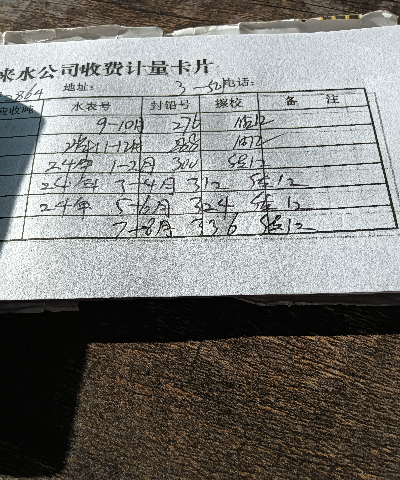 来水公司收费计量卡片
2864 地址: 3-52 电话:
应收吨 水表号 封铅号 操校 备 注
9-10月 276 12
11-12月 288 12
24年 1-2月 300 12
24年 3-4月 312 12
24年 5-6月 324 12
7-8月 336 12